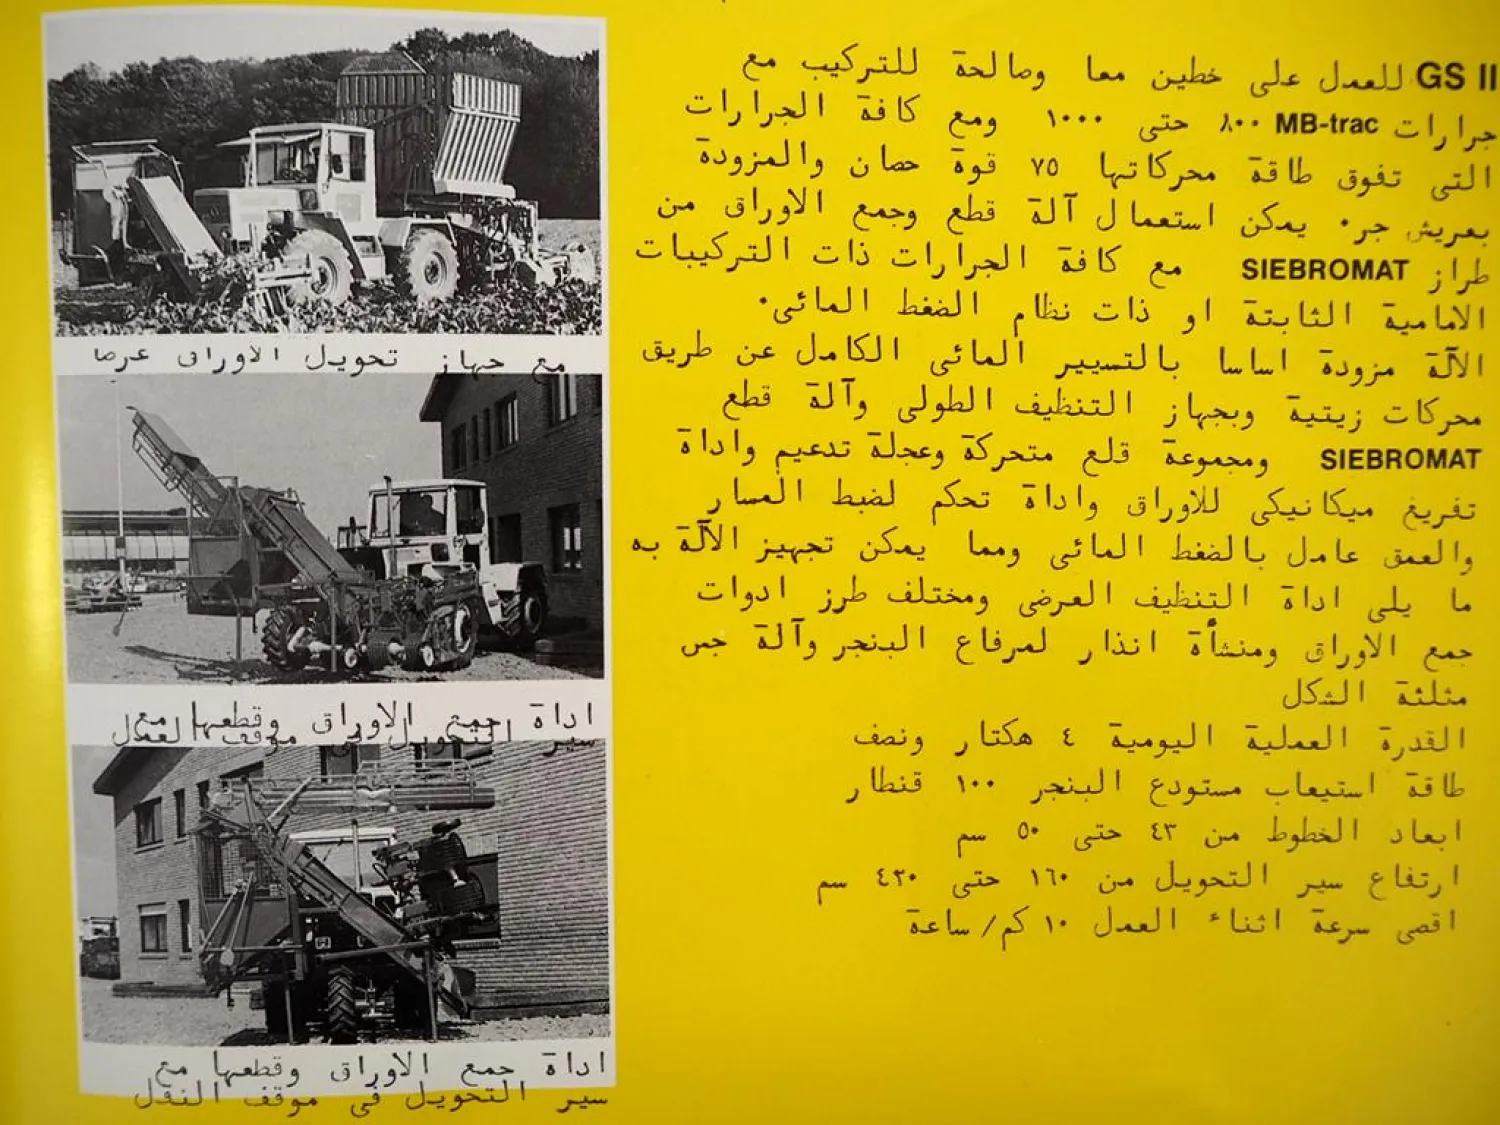 GS II للعمل على خطين معا وصالحة للتركيب مع
جرارات MB-trac ٨٠٠ حتى ١٠٠٠ ومع كافة الجرارات
التى تفوق طاقة محركاتها ٧٥ قوة حصان والمزودة
بعريش جر٠ يمكن استعمال آلة قطع وجمع الاوراق من
طراز SIEBROMAT مع كافة الجرارات ذات التركيبات
الامامية الثابتة او ذات نظام الضغط المائى٠
الآلة مزودة اساسا بالتسيير المائى الكامل عن طريق
محركات زيتية وبجهاز التنظيف الطولى وآلة قطع
SIEBROMAT ومجموعة قلع متحركة وعجلة تدعيم واداة
تفريغ ميكانيكى للاوراق واداة تحكم لضبط المسار
والعمق عامل بالضغط المائى ومما يمكن تجهيز الآلة به
ما يلى اداة التنظيف العرضى ومختلف طرز ادوات
جمع الاوراق ومنشأة انذار لمرفاع البنجر وآلة جس
مثلثة الشكل
القدرة العملية اليومية ٤ هكتار ونصف
طاقة استيعاب مستودع البنجر ١٠٠ قنطار
ابعاد الخطوط من ٤٣ حتى ٥٠ سم
ارتفاع سير التحويل من ١٦٠ حتى ٤٢٠ سم
اقصى سرعة اثناء العمل ١٠ كم/ساعة
مع جهاز تحويل الاوراق عرضا
اداة جمع الاوراق وقطعها مع
سير التحويل فى موقف العمل
اداة جمع الاوراق وقطعها مع
سير التحويل فى موقف النقل